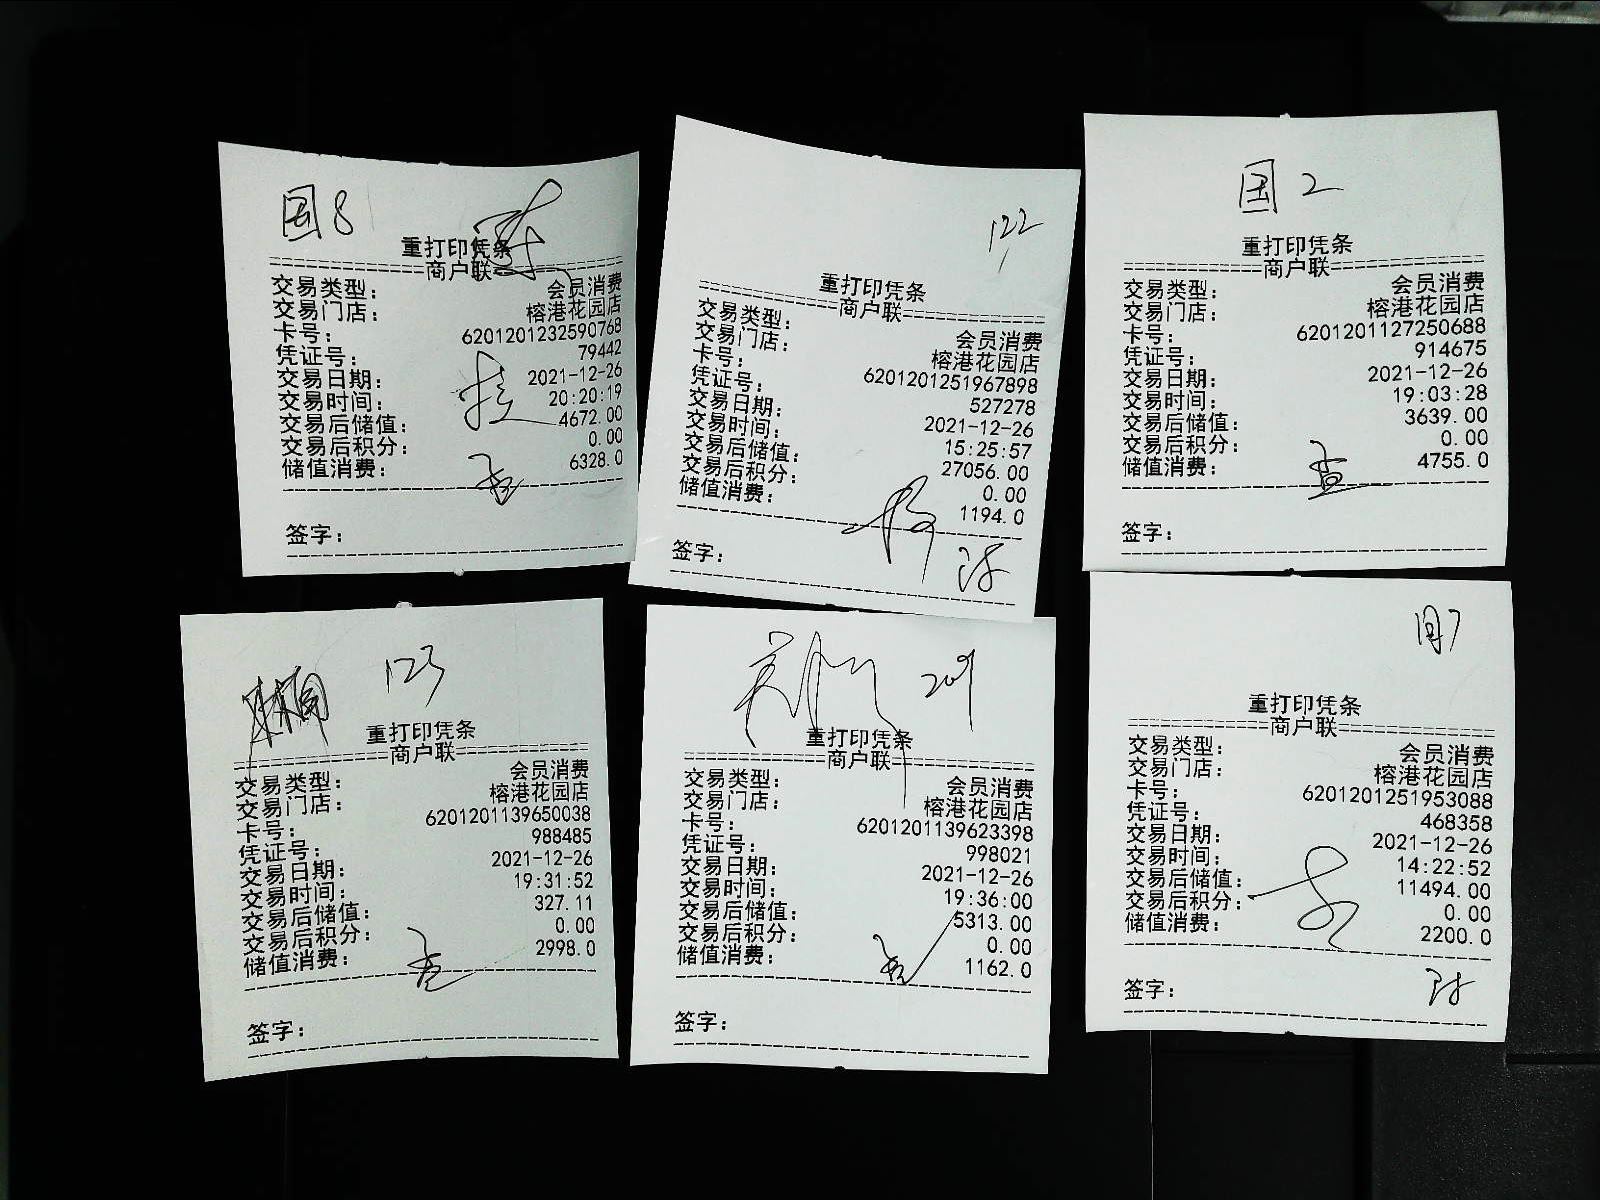 国8
重打印凭条
商户联
交易类型: 会员消费
交易门店: 榕港花园店
卡号: 6201201232590768
凭证号: 79442
交易日期: 2021-12-26
交易时间: 20:20:19
交易后储值: 4672.00
交易后积分: 0.00
储值消费: 6328.0
签字:
122
重打印凭条
商户联
交易类型: 会员消费
交易门店: 榕港花园店
卡号: 6201201251967898
凭证号: 527278
交易日期: 2021-12-26
交易时间: 15:25:57
交易后储值: 27056.00
交易后积分: 0.00
储值消费: 1194.0
签字:
国2
重打印凭条
商户联
交易类型: 会员消费
交易门店: 榕港花园店
卡号: 6201201127250688
凭证号: 914675
交易日期: 2021-12-26
交易时间: 19:03:28
交易后储值: 3639.00
交易后积分: 0.00
储值消费: 4755.0
签字:
123
重打印凭条
商户联
交易类型: 会员消费
交易门店: 榕港花园店
卡号: 6201201139650038
凭证号: 988485
交易日期: 2021-12-26
交易时间: 19:31:52
交易后储值: 327.11
交易后积分: 0.00
储值消费: 2998.0
签字:
209
重打印凭条
商户联
交易类型: 会员消费
交易门店: 榕港花园店
卡号: 6201201139623398
凭证号: 998021
交易日期: 2021-12-26
交易时间: 19:36:00
交易后储值: 5313.00
交易后积分: 0.00
储值消费: 1162.0
签字:
国7
重打印凭条
商户联
交易类型: 会员消费
交易门店: 榕港花园店
卡号: 6201201251953088
凭证号: 468358
交易日期: 2021-12-26
交易时间: 14:22:52
交易后储值: 11494.00
交易后积分: 0.00
储值消费: 2200.0
签字: